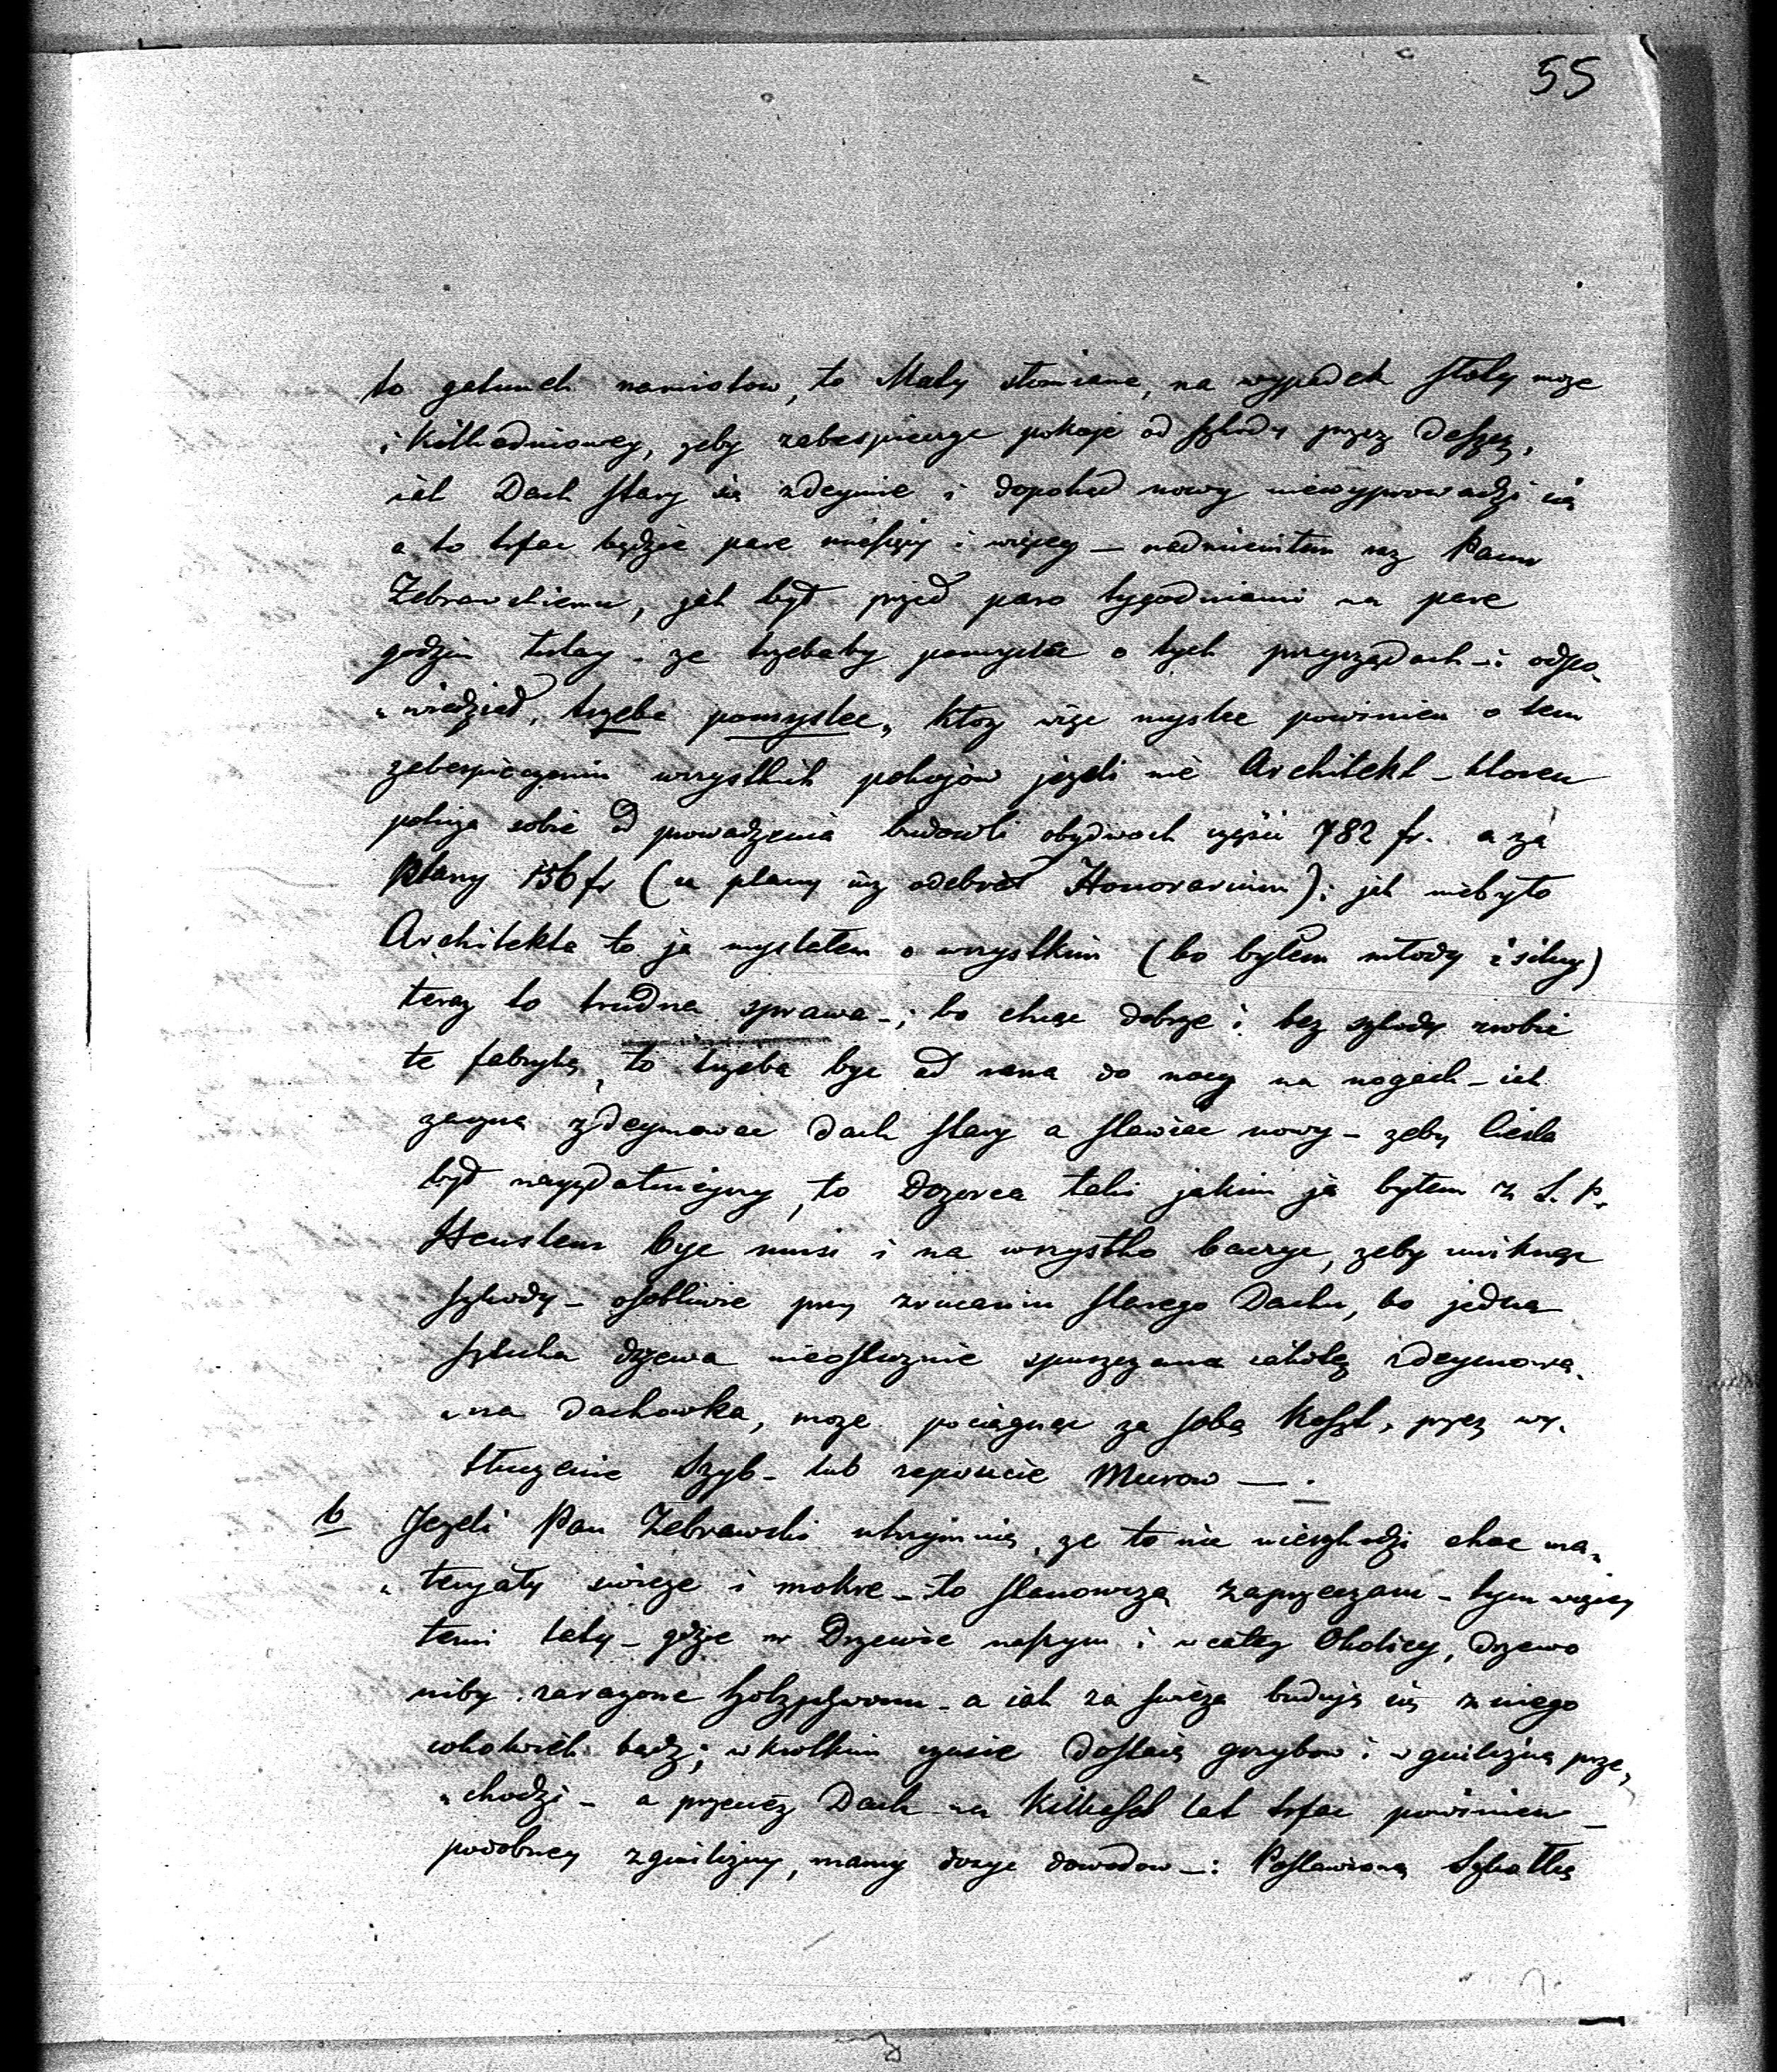 55
to gatunek namiotow, to Maty słomiane, na wypadek słoty moze
i Kilkodniowey, zeby zabespieczyc pokoje od szkody przez Deszcz,
iak Dach stary się zdeymie i dopokąd nowy niewyprowadzi się
a to trfac będzie pare miesięcy i więcey — nadmieniłem raz Panu
Zebrawskiemu, jak był przed paro tygodniami na pare
godzin tutay - ze trzebaby pomyslec o tych przyrządach —: odpo„
„wiedział, trzeba pomyslec, ktoz więc myslec powinien o tem
zabespieczeniu wszystkich pokojów jezeli nie Architekt — ktoren
policza sobie od prowadzenia budowli obydwoch części 782 fr. a za
Plany 156 fr (za plany iuz odebrał Honorarium); jak niebyło
Architekta to ja myslałem o wszystkim (bo byłem młody i silny)
teraz to trudna sprawa —; bo chcąc dobrze i bez szkody zrobic
te fabrykę, to trzeba byc od rana do nocy na nogach — iak
zaczną zdeymowac dach stary a stawiac nowy — zeby Ciesla
był nayzdatnieyszy, to Dozorca taki jakim ja byłem z S. P.
byc musi i na wszystko baczyc, zeby uniknąc
szkody — osobliwie przy zrucaniu starego Dachu, bo jedna
sztuka drzewa nieostroznie spuszczana iakotez zdeymowa„
„na dachowka, moze pociągnąc za sobą Koszt, przez wy„
tłuczenie Szyb — lub zepsucie Murow —.
b Jezeli Pan Zebrawski utrzymuie, ze to nie nieszkodzi choc ma„
„teryały swieze i mokre — to stanowczo zaprzeczam — tym więcey
temi laty — gdzie w Drzewie naszym i w całey Okolicy, drzewo
niby zarazone holzszwamem — a iak za swieza buduje się z niego
cokolwiek bądz; w krotkim czasie dostaie grzybow i w gniliznę prze„
„chodzi — a przeciez Dach na Kilkaset lat trfac powinien —
podobney zgnilizny, mamy dosyc dowodow —: Postawioną Szkołkę